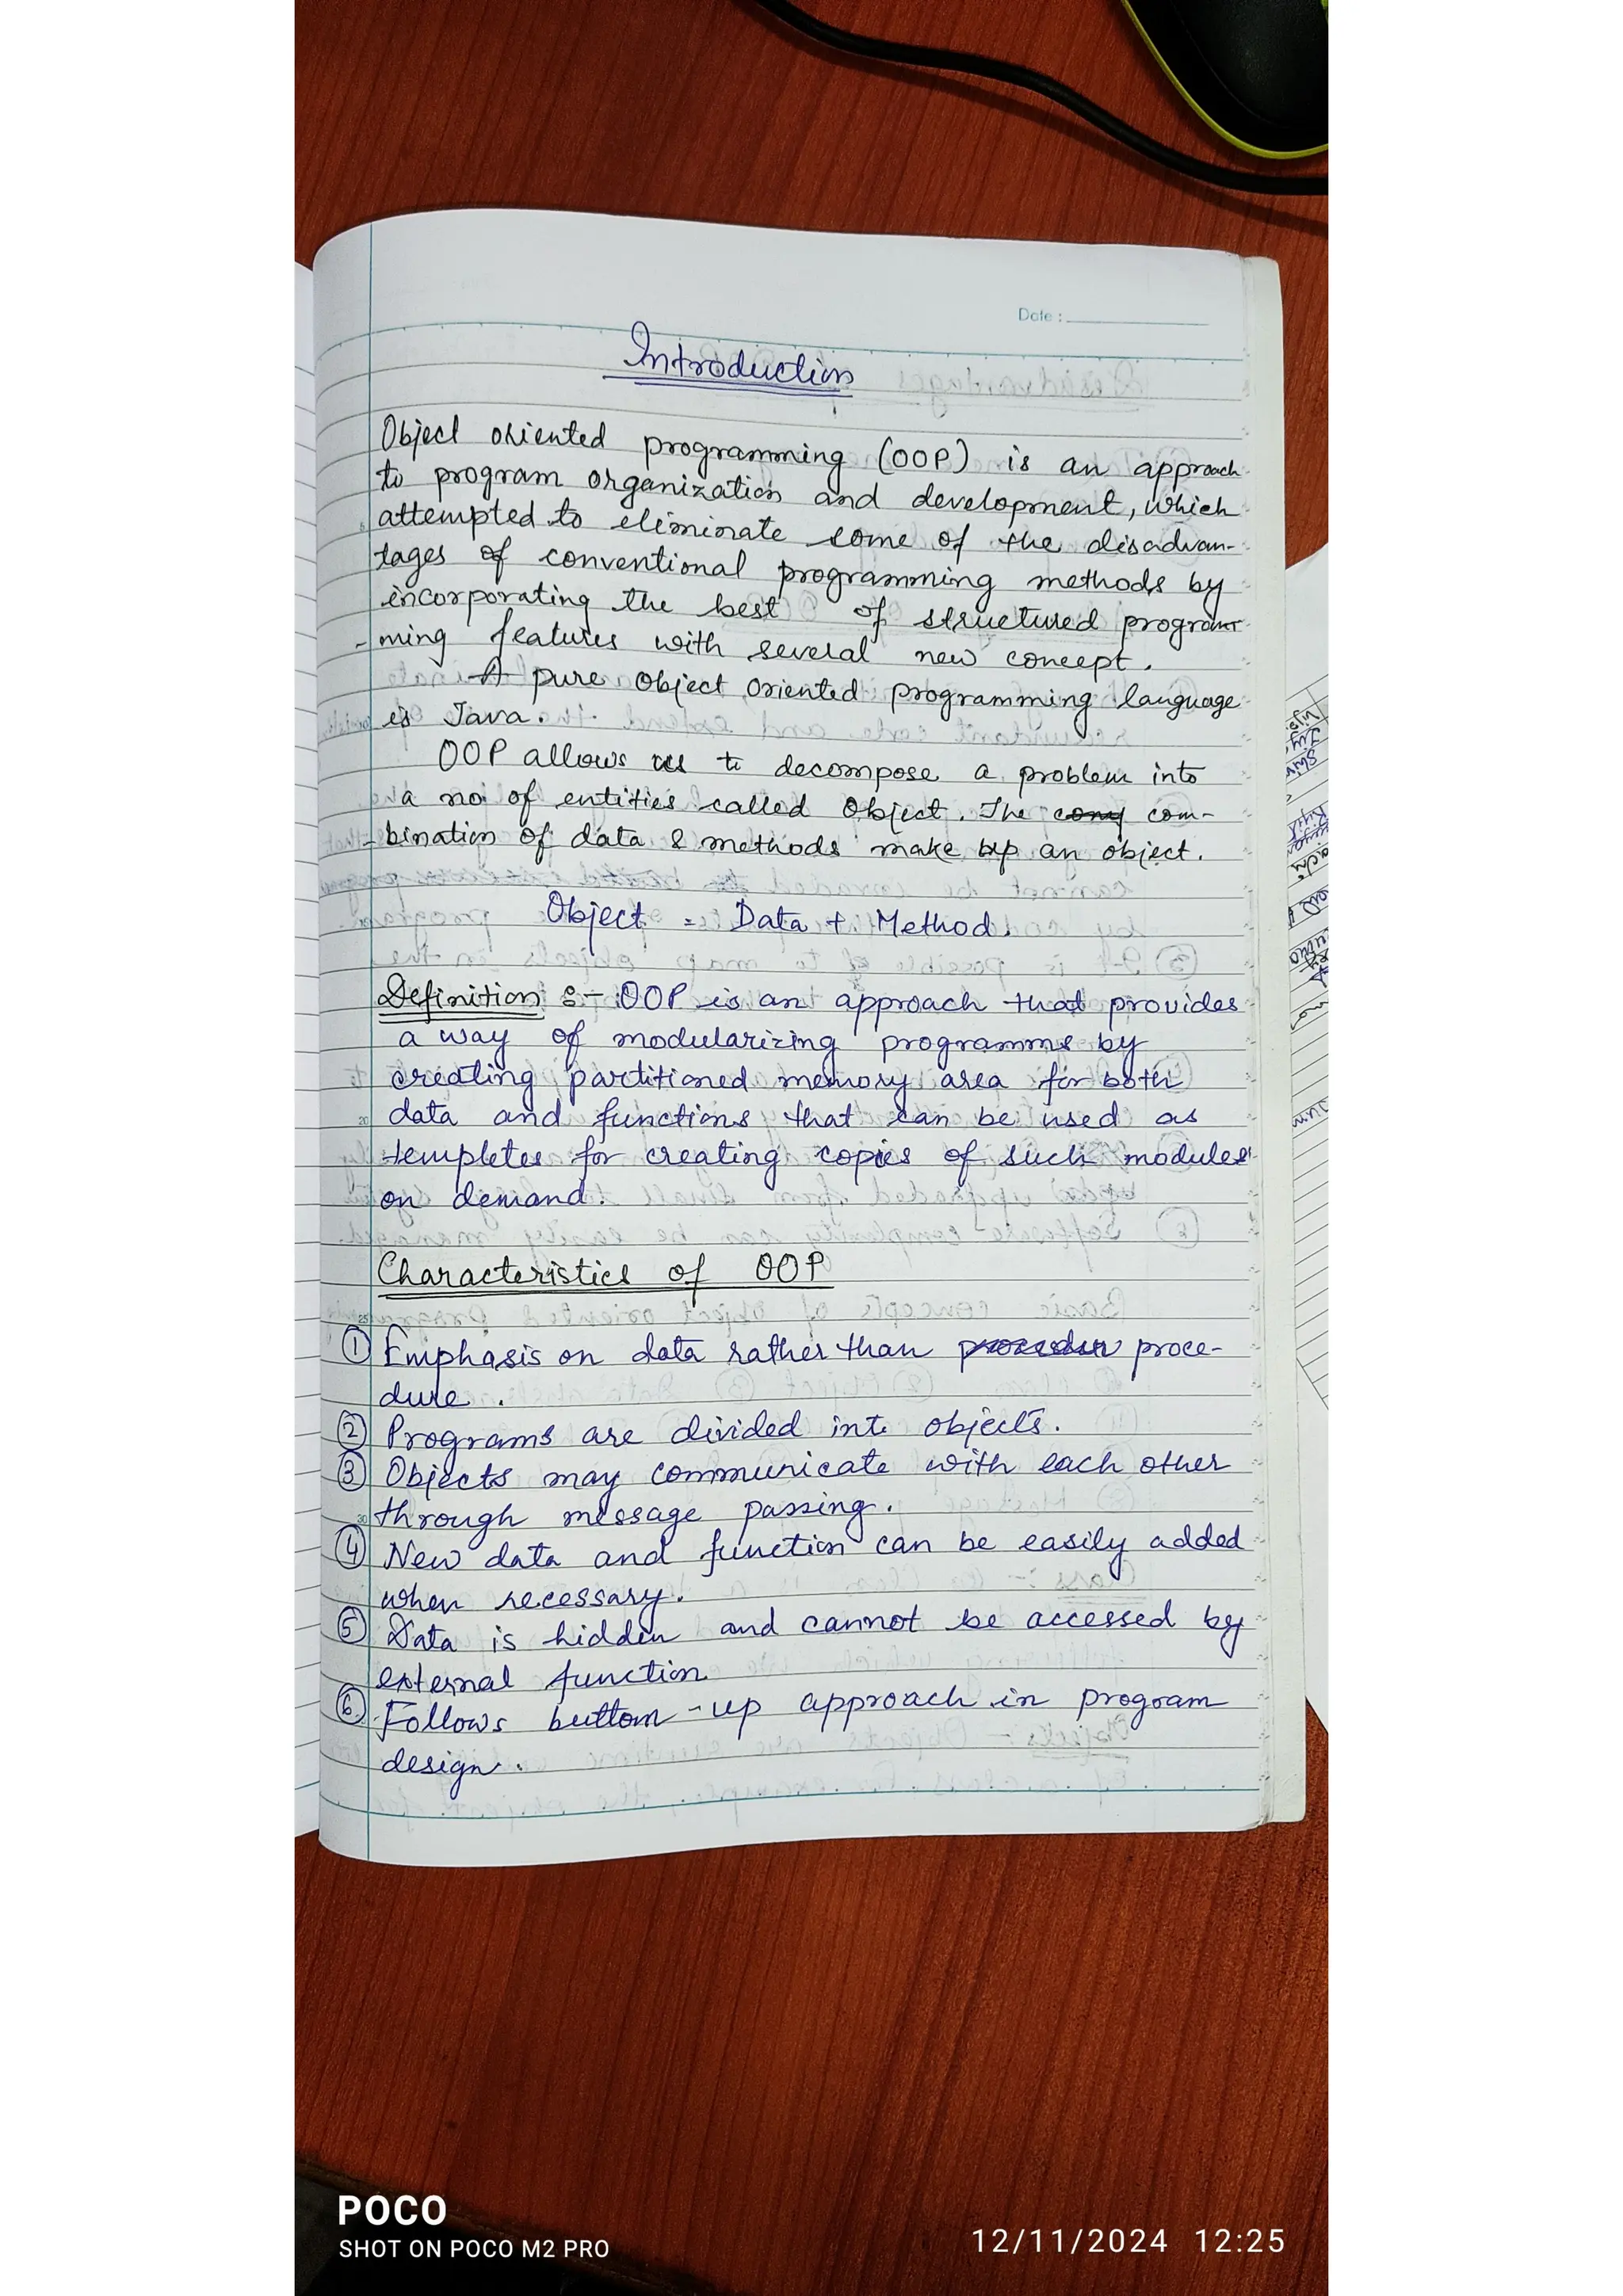 Date :
Introduction
Object oriented programming (OOP) is an approach
to program organization and development, which
attempted to eliminate some of the disadvan-
tages of conventional programming methods by
incorporating the best of structured program
-ming features with several new concept.
A pure object oriented programming language
is Java.
OOP allows us to decompose a problem into
a no of entities called object. The com-
-bination of data & methods make up an object.
Object = Data + Method.
Definition :- OOP is an approach that provides
a way of modularizing programms by
creating partitioned memory area for both
data and functions that can be used as
templetes for creating copies of such modules
on demand.
Characteristics of OOP
① Emphasis on data rather than proce-
dure.
② Programs are divided into objects.
③ Objects may communicate with each other
through message passing.
④ New data and function can be easily added
when necessary.
⑤ Data is hidden and cannot be accessed by
external function
⑥ Follows buttom-up approach in program
design.
POCO
SHOT ON POCO M2 PRO
12/11/2024 12:25